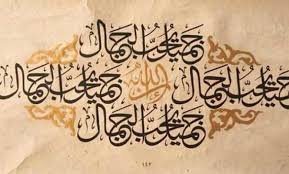 جميل يحب الجمال
جميل يحب الجمال إن الله جميل يحب الجمال
جميل يحب الجمال
١٤٢